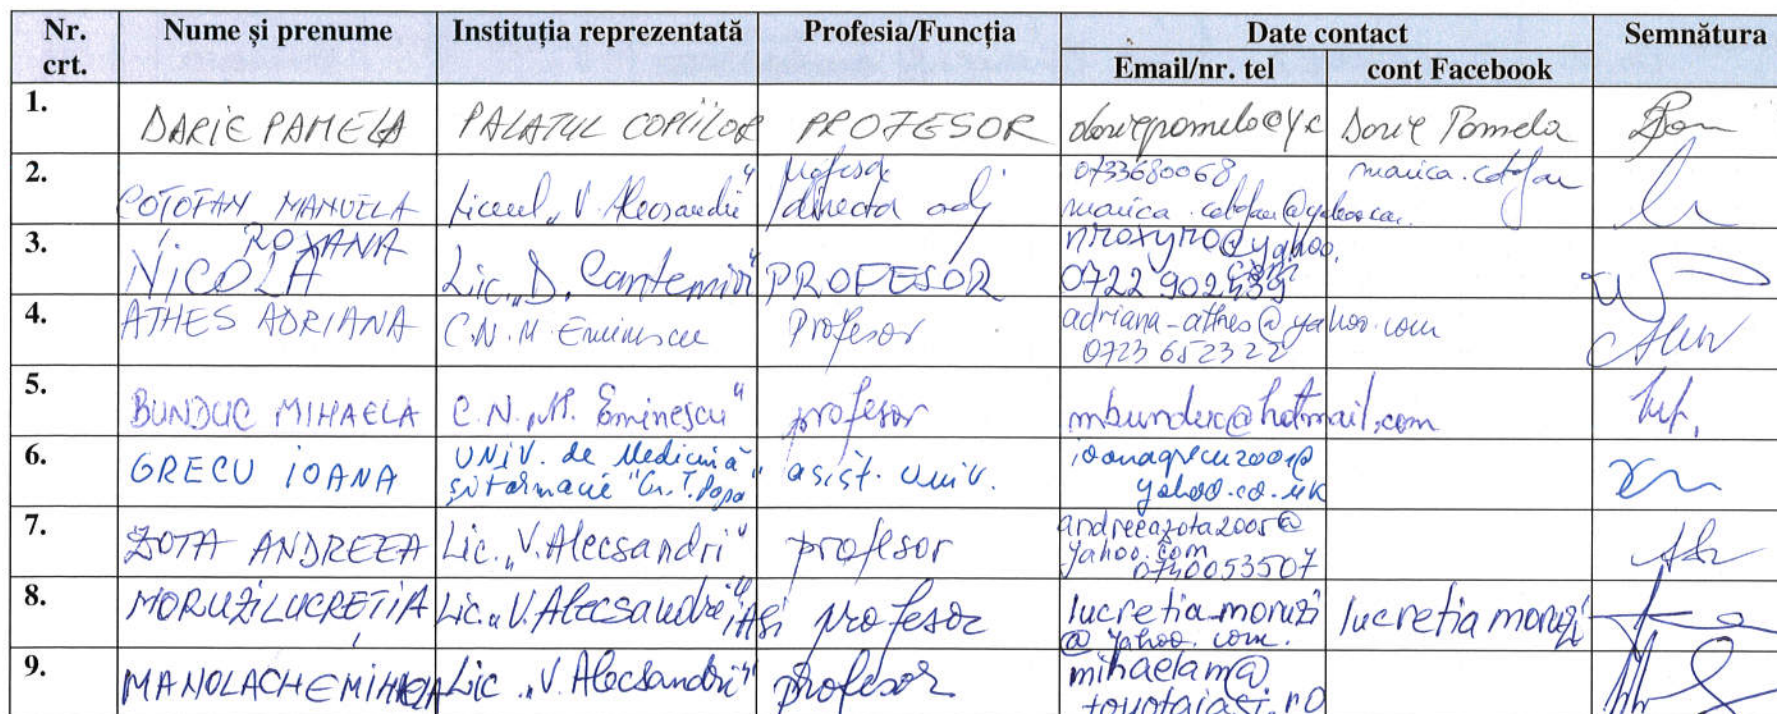 Nr. crt. Nume și prenume Instituția reprezentată Profesia/Funcția Date contact Semnătura
Email/nr. tel cont Facebook
1. DARIE PAMELA PALATUL COPIILOR PROFESOR dariepamela@y Darie Pamela
2. COȚOFAN MANUELA Liceul „V. Alecsandri" profesor 0733680068
director adj
3. ROXANA
NICOLA Lic. „D. Cantemir" PROFESOR nroxyro@yahoo.
com
0722
4. ATHES ADRIANA C.N. M. Eminescu Profesor adriana-athes@yahoo.com
0723 652322
5. BUNDUC MIHAELA C.N. „M. Eminescu" profesor mbunduc@hotmail.com
6. GRECU IOANA UNIV. de Medicină asist. univ. ioanagrecu2001@
și Farmacie "Gr. T. Popa" yahoo.co.uk
7. ZOTA ANDREEA Lic. „V. Alecsandri" profesor andreeazota2005@
yahoo.com
0740053507
8. MORUZI LUCREȚIA Lic. „V. Alecsandri" IAȘI profesor lucretia_moruzi lucretia moruzi
@yahoo.com.
9. MANOLACHE MIHAELA Lic. „V. Alecsandri" profesor mihaelam@
toyotaiasi.ro